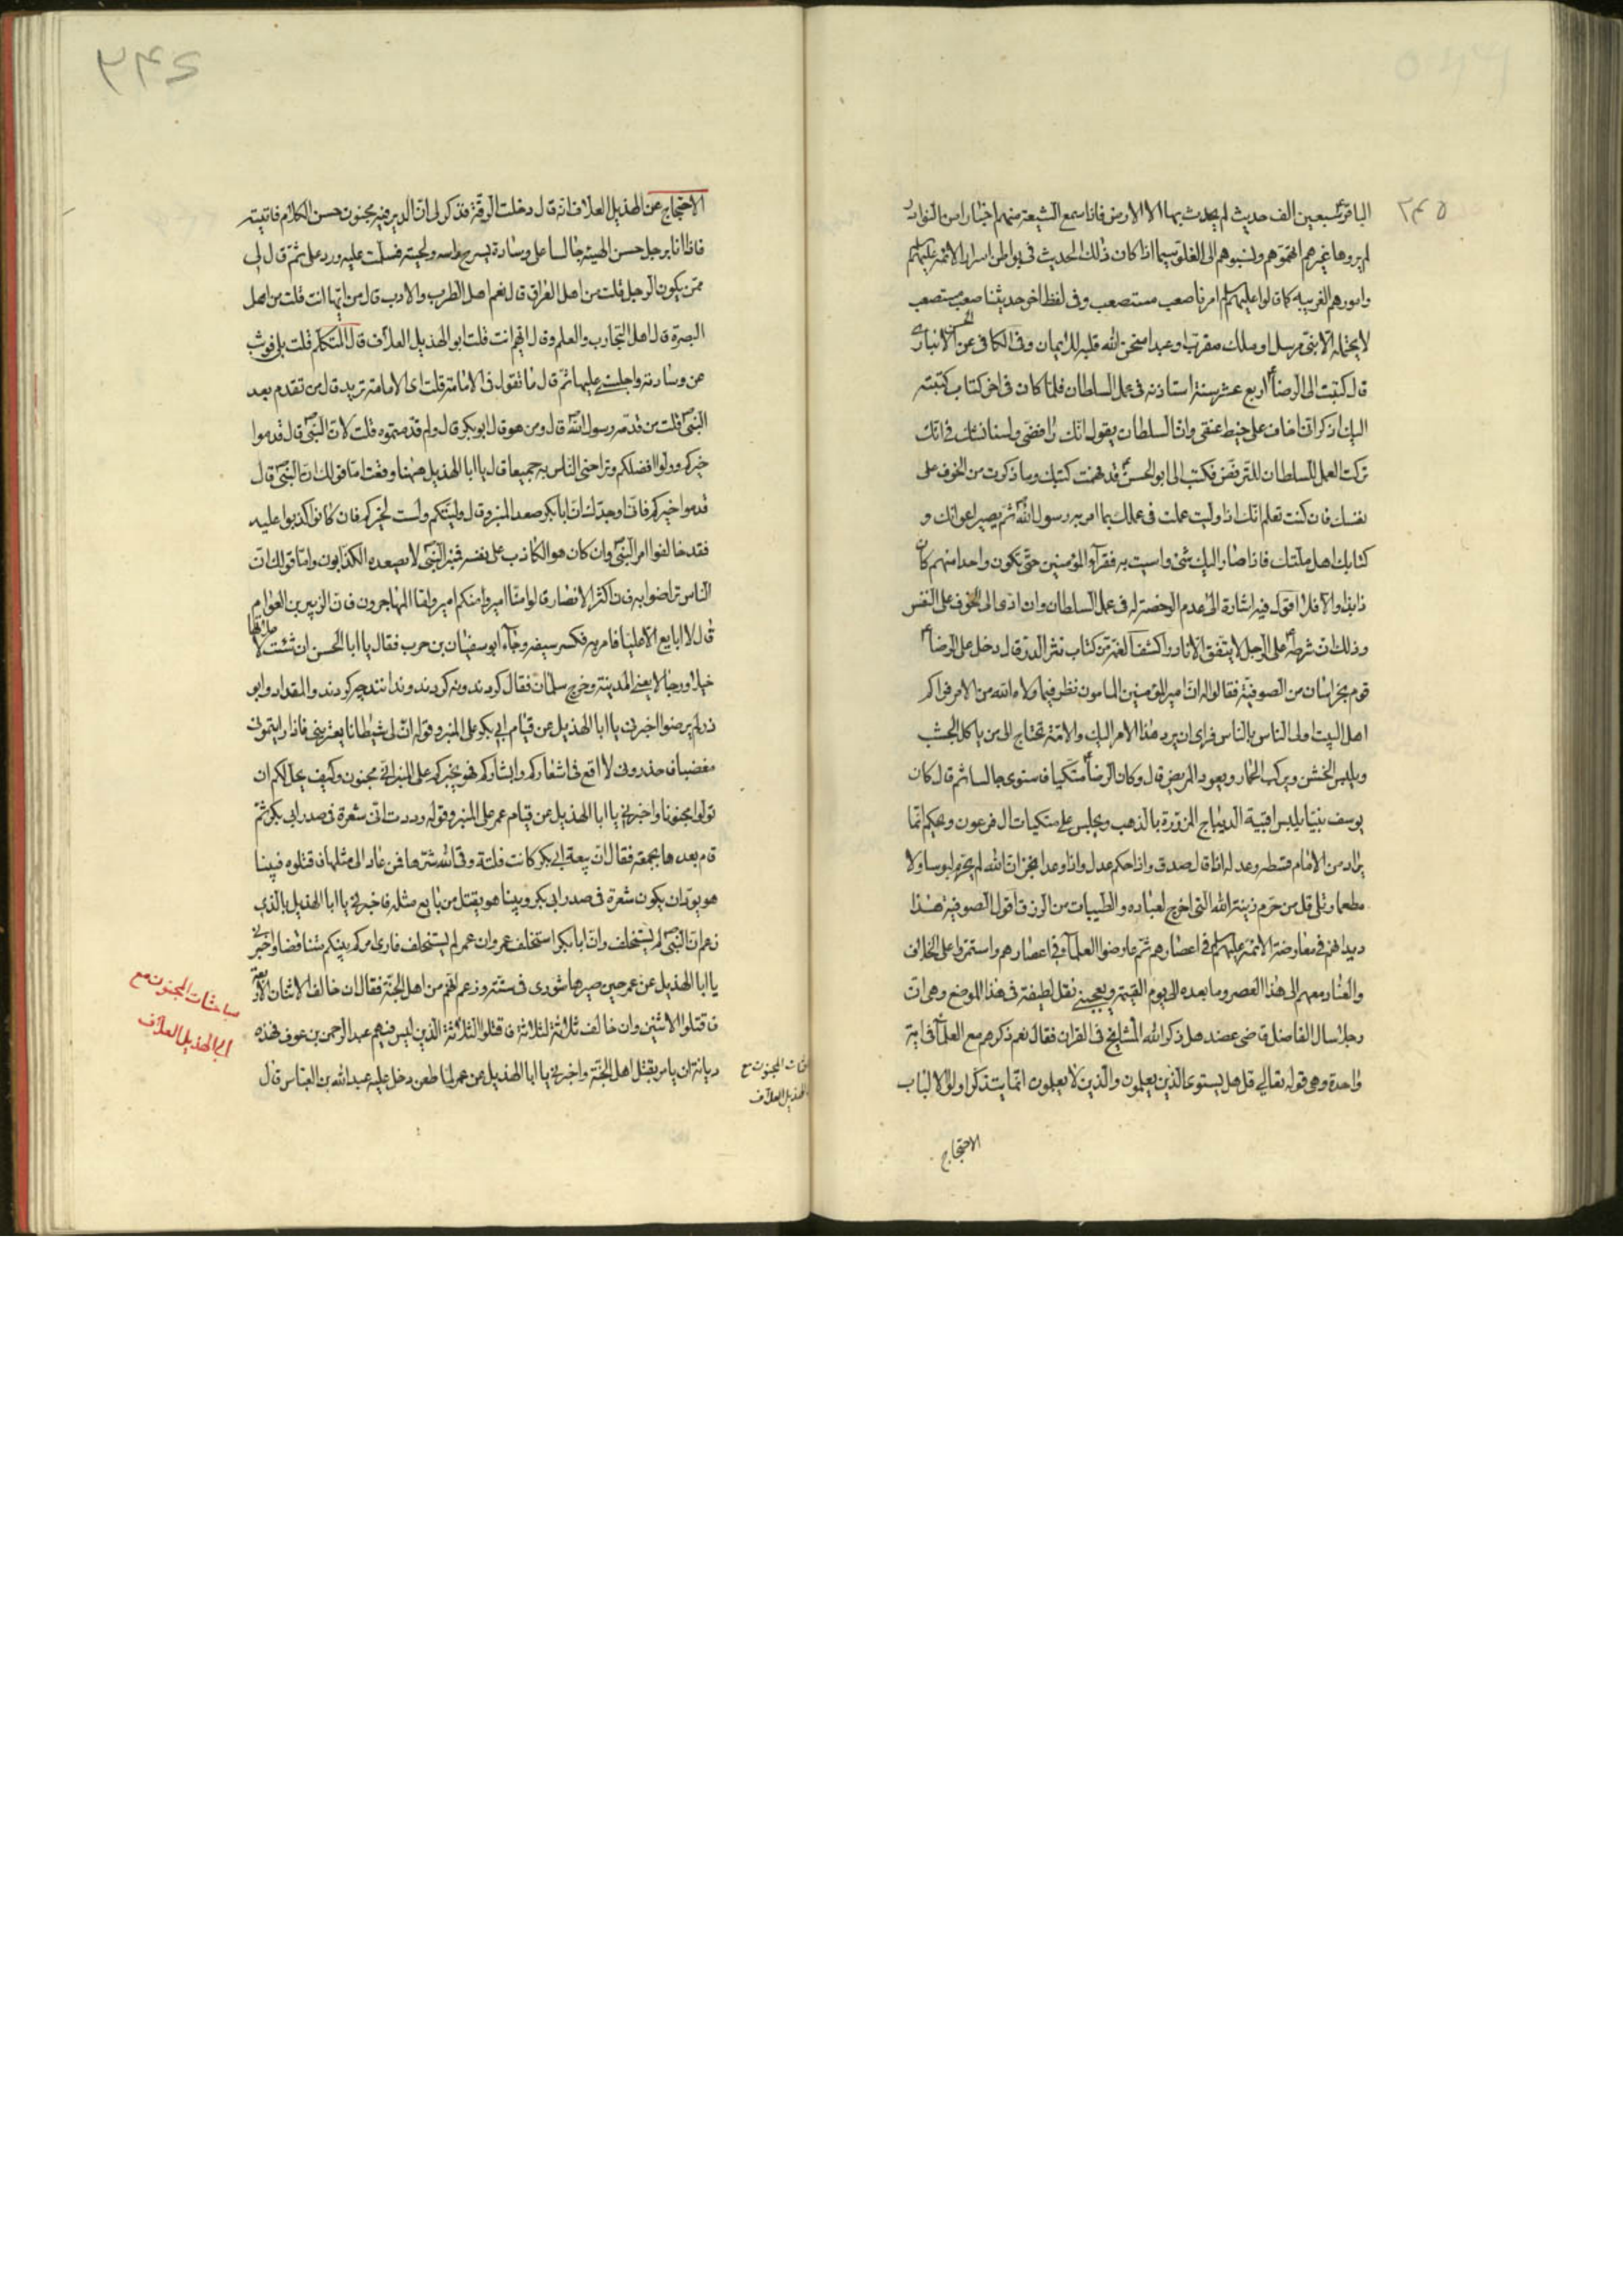 ٣٤٥
الباقرع سبعين الف حديث لم يحدث بها الا الارض فاذا سمع الشيعة منهم اخبارا من النوادر
لم يروها غيرهم اتهموهم ونسبوهم الى الغلو سيما اذا كان ذلك الحديث في بواطن اسرار الائمة عليهم السلم
وامورهم الغريبه كما قالوا عليهم السلم امرنا صعب مستصعب وفى لفظ اخر حديثنا صعب مستصعب
لا يحتمله الا نبى مرسل او ملك مقرب او عبد امتحن الله قلبه للايمان وفى الكافى عن الحسن الانبارى
قال كتبت الى الرضاع اربع عشر سنة استاذنه فى عمل السلطان فلما كان فى اخر كتاب كتبته
اليك اذكر انى اخاف على خيط عنقى وان السلطان يقول انك رافضى ولسنا نشك فى انك
تركت العمل للسلطان للترفض فكتب الى ابو الحسنع قد فهمت كتبك وما ذكرت من الخوف على
نفسك فان كنت تعلم انك اذا وليت عملت فى عملك بما امر به رسول اللهص ثم يصير اعوانك و
كتابك اهل ملتك فاذا صار اليك شئ واسيت به فقراء المؤمنين حتى تكون واحدا منهم كان
ذا بذا والا فلا اقول فيه اشارة الى عدم الرخصة له فى عمل السلطان وان ادى الى الخوف على النفس
وذلك ان شرطه على الرجل لا يتفق الا نادرا كشف الغمة من كتاب نثر الدرر قال دخل على الرضاع
قوم بخراسان من الصوفية فقالوا له ان امير المؤمنين المامون نظر فيما ولاه الله من الامر فراكم
اهل البيت اولى الناس بالناس فراى ان يرد هذا الامر اليك والامة تحتاج الى من ياكل الجشب
ويلبس الخشن ويركب الحمار ويعود المريض قال وكان الرضاع متكيا فاستوى جالسا ثم قال كان
يوسف نبيا يلبس اقبية الديباج المزررة بالذهب ويجلس على متكيات ال فرعون ويحكم انما
يراد من الامام قسطه وعدله اذا قال صدق واذا حكم عدل واذا وعد انجز ان الله لم يحرم لبوسا ولا
مطعما وتلى قل من حرم زينة الله التى اخرج لعباده والطيبات من الرزق اقول الصوفية هذا
ديدانهم فى معارضة الائمة عليهم السلم فى اعصارهم ثم عارضوا العلماء فى اعصارهم واستمروا على الخلاف
والعناد معهم الى هذا العصر وما بعده الى يوم القيمة ويعجبنى نقل لطيفة فى هذا الموضع وهى ان
رجلا سال الفاضل قاضى عضد هل ذكر الله المشايخ فى القران فقال نعم ذكرهم مع العلماء فى اية
واحدة وهى قوله تعالى قل هل يستوى الذين يعلمون والذين لا يعلمون انما يتذكر اولوا الالباب
الاحتجاج
٣٤٤
الاحتجاج عن الهذيل العلاف انه قال دخلت الرقة فذكر لى ان بالدير فيه مجنون حسن الكلام فاتيته
فاذا انا برجل حسن الهيئة جالسا على وسادة يسرح راسه ولحيته فسلمت عليه ورد على ثم قال لى
ممن يكون الرجل قلت من اهل العراق قال نعم اهل الطرب والادب قال من ايها انت قلت من اهل
البصرة قال اهل التجارب والعلم وقال ايهم انت قلت ابو الهذيل العلاف قال المتكلم قلت بلى فوثب
عن وسادته واجلسنى عليها ثم قال ما تقول فى الامامة قلت اى الامامة تريد قال من تقدم بعد
النبىص قلت من قدمه رسول اللهص قال ومن هو قال ابو بكر قال ولم قدمتموه قلت لان النبىص قال قدموا
خيركم وولوا افضلكم وتراضى الناس به جميعا قال يا ابا الهذيل ههنا وقعت اما قولك ان النبىص قال
قدموا خيركم فانى اوجدك ان ابا بكر صعد المنبر وقال وليتكم ولست بخيركم فان كانوا كذبوا عليه
فقد خالفوا امر النبىص وان كان هو الكاذب على نفسه فمنبر النبىص لا يصعده الكذابون واما قولك ان
الناس تراضوا به فان اكثر الانصار قالوا منا امير ومنكم امير واما المهاجرون فان الزبير بن العوام
قال لا ابايع الا عليا فامر به فكسر سيفه وجاء ابو سفيان بن حرب فقال يا ابا الحسن ان شئت لاملانها
خيلا ورجالا يعنى المدينة وخرج سلمان فقال كردند ونه كردند وندانند چه كردند والمقداد وابو
ذر لم يرضوا اخبرنى يا ابا الهذيل عن قيام ابى بكر على المنبر وقوله ان لى شيطانا يعترينى فاذا رايتمونى
مغضبا فاحذرونى لا اقع فى اشعاركم وابشاركم فهو يخبركم على المنبر انى مجنون وكيف يحل لكم ان
تولوا مجنونا واخبرنى يا ابا الهذيل عن قيام عمر على المنبر وقوله وددت انى شعرة فى صدر ابى بكر ثم
قام بعدها بجمعة فقال ان بيعة ابى بكر كانت فلتة وقى الله شرها فمن عاد الى مثلها فاقتلوه فبينا
هو يود ان يكون شعرة فى صدر ابى بكر وبينا هو يقتل من بايع مثله فاخبرنى يا ابا الهذيل بالذى
زعم ان النبىص لم يستخلف وان ابا بكر استخلف عمر وان عمر لم يستخلف فارى امركم بينكم متناقضا واخبرنى
يا ابا الهذيل عن عمر حين صيرها شورى فى ستة وزعم انهم من اهل الجنة فقال ان خالف الاثنان الاربعة
فاقتلوا الاثنين وان خالف ثلاثة لثلاثة فاقتلوا الثلاثة الذين ليس فيهم عبد الرحمن بن عوف فهذه
ديانة ان يامر بقتل اهل الجنة واخبرنى يا ابا الهذيل عن عمر لما طعن دخل عليه عبد الله بن العباس قال
مباحثات المجنون مع
ابى الهذيل العلاف
المجنون مع
الهذيل العلاف